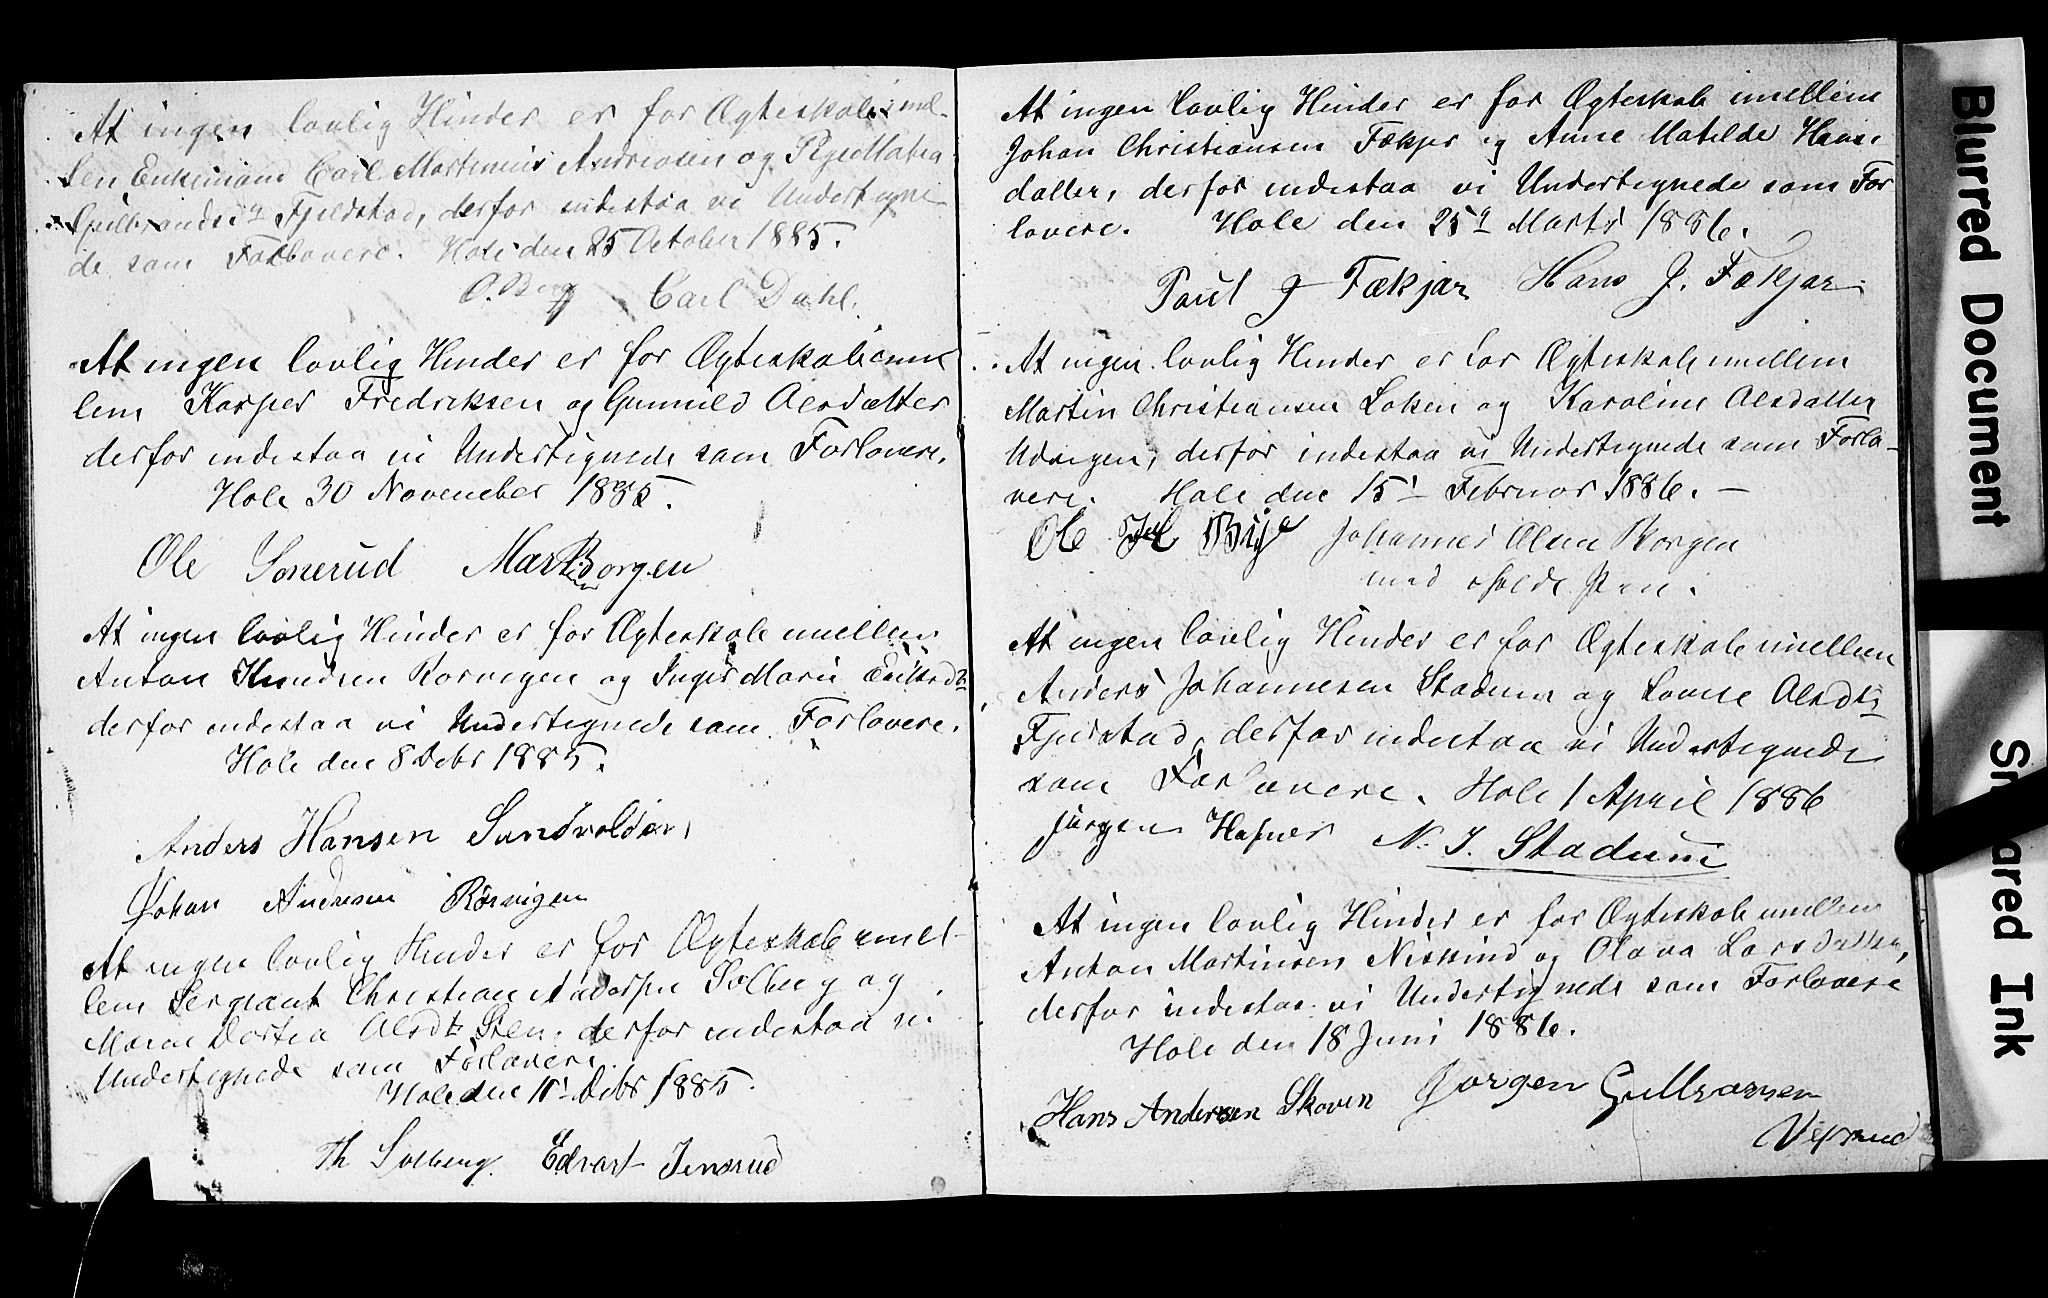 At ingen lovlig Hinder er for Ægteskab imel-
len Enkemand Carl Martinius Andreasen og
Fjeldstad, derfor indestaa vi Undertegne
de som Forlovere. Hole den 25 October 1885.
O. Berg Carl Dahl.
At ingen lovlig Hinder er for Ægteskab imel
lem Kasper Fredriksen og Gunnild Olesdatter
derfor indestaa vi Undertegnede som Forlovere.
Hole 30 November 1885.
Ole Sonerud Mart Borgen
At ingen lovlig Hinder er for Ægteskab imellem
Anton Knudsen Rorvigen og Inger Marie
derfor indestaa vi Undertegnede som Forlovere.
Hole den 8 Debr 1885.
Anders Hansen Sundvolden
Johan Andresen Rörvigen
At ingen lovlig Hinder er for Ægteskab imel-
lem Sergeant Christian Solberg og
Maren Dortea Olsdtr Sten, derfor indestaa vi
Undertegnede som Forlovere.
Hole den Debr 1885.
Th Solberg Edvart Jensrud
At ingen lovlig Hinder er for Ægteskab imellem
Johan Christiansen Fækjer og Anne Matilde Hans
datter, derfor indestaa vi Undertegnede som For
lovere. Hole den 25d Marts 1886.
Paul J Fækjær Hans J. Fækjær
At ingen lovlig Hinder er for Ægteskab imellem
Martin Christiansen Løken og Karoline Olesdatter
Udvigen, derfor indestaa vi Undertegnede som Forlo-
vere. Hole den 15 Februar 1886. —
Ole Bye Johannes Olsen Borgen
med Pen.
At ingen lovlig Hinder er for Ægteskab imellem
Anders Johannesen Stadum og Lovise Olsdtr
Fjeldstad, derfor indestaa vi Undertegnede
som Forlovere. Hole 1 April 1886
Jørgen Hafner N. J. Stadum
At ingen lovlig Hinder er for Ægteskab imellem
Anton Martinsen Niskind og Olava Larsdatter,
derfor indestaa vi Undertegnede som Forlovere
Hole den 18 Juni 1886.
Hans Andersen Skoven Jørgen Gulbransen
Vefsrud
Blurred Document
Smeared Ink